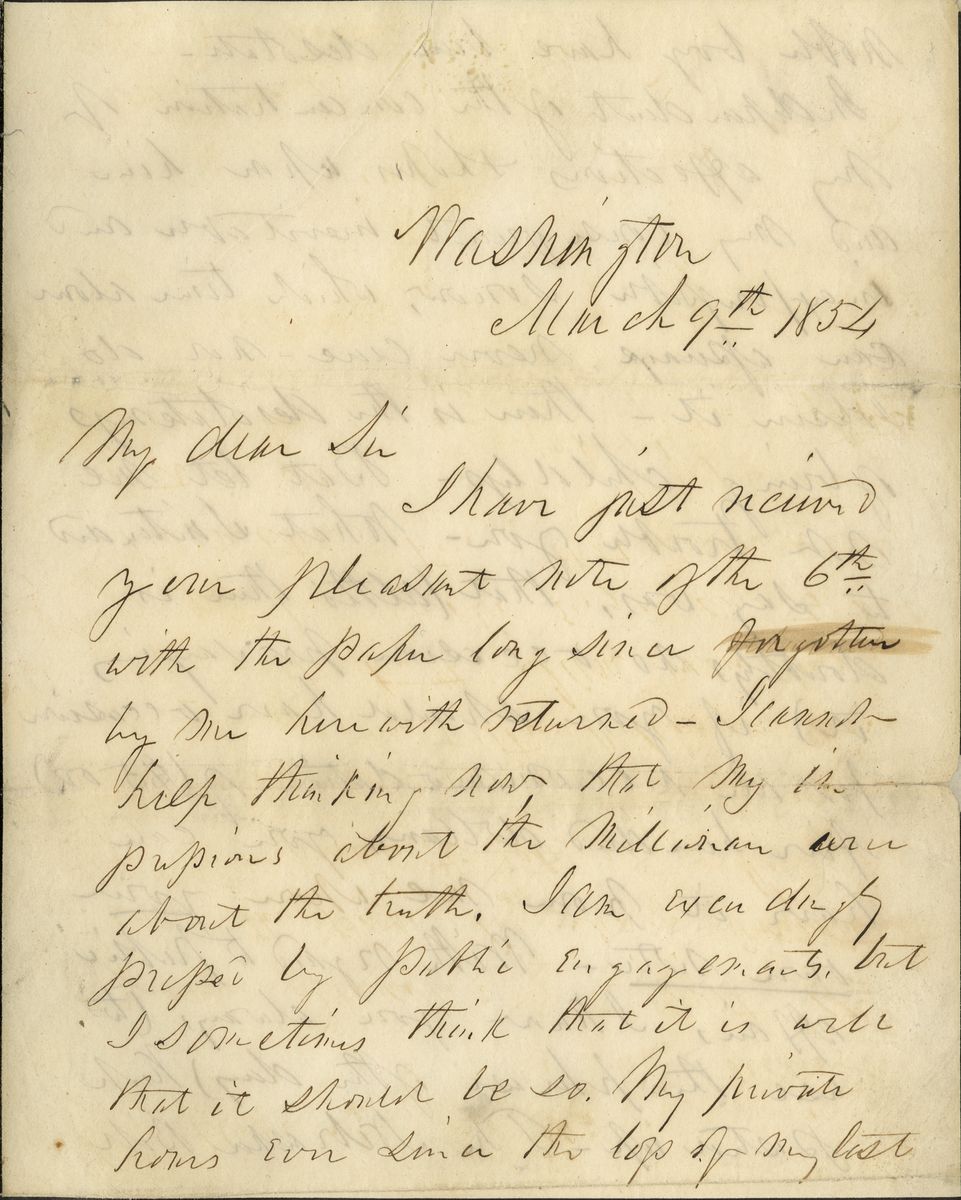 Washington
March 9th 1854
My dear Sir
I have just received
your pleasant note of the 6th
with the paper long since forgotten
by me herewith returned – I cannot
help thinking now, that my im-
pressions about the Millerian were
about the truth. I am exceedingly
pressed by public engagements, but
I sometimes think that it is well
that it should be so. My private
hours ever since the loss of my last